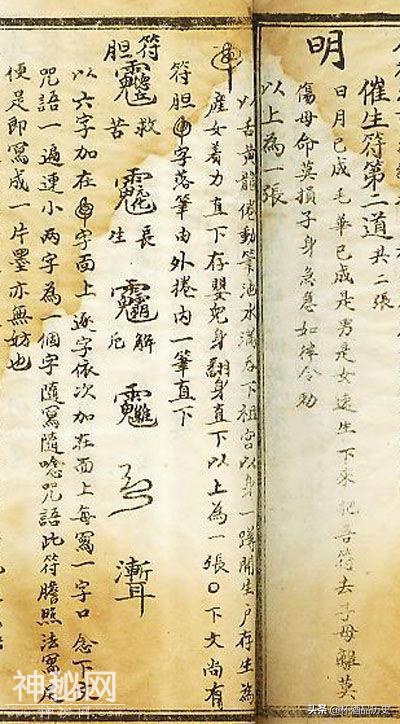 催生符第二道 共二張
明
日月已成毛華已成是男是女速生下來把吾符去子母離莫
傷母命莫損子身急急如律令勅
以上為一張
以舌黃龍倦動筆池水滿吞下祖宮以身一蹲開生户存生為
產女着力直下存嬰兒身翻身直下以上為一張〇下文尚有
符胆 字落筆由外捲内一筆直下
符胆
救苦
長生
解厄
以六字加在 字面上逐字依次加在面上每寫一字口念下
咒語一遍連小两字為一個字隨寫隨唸咒語此符膽照法寫
便是即寫成一片墨亦無妨也
神秘网
头条 @杯酒品历史